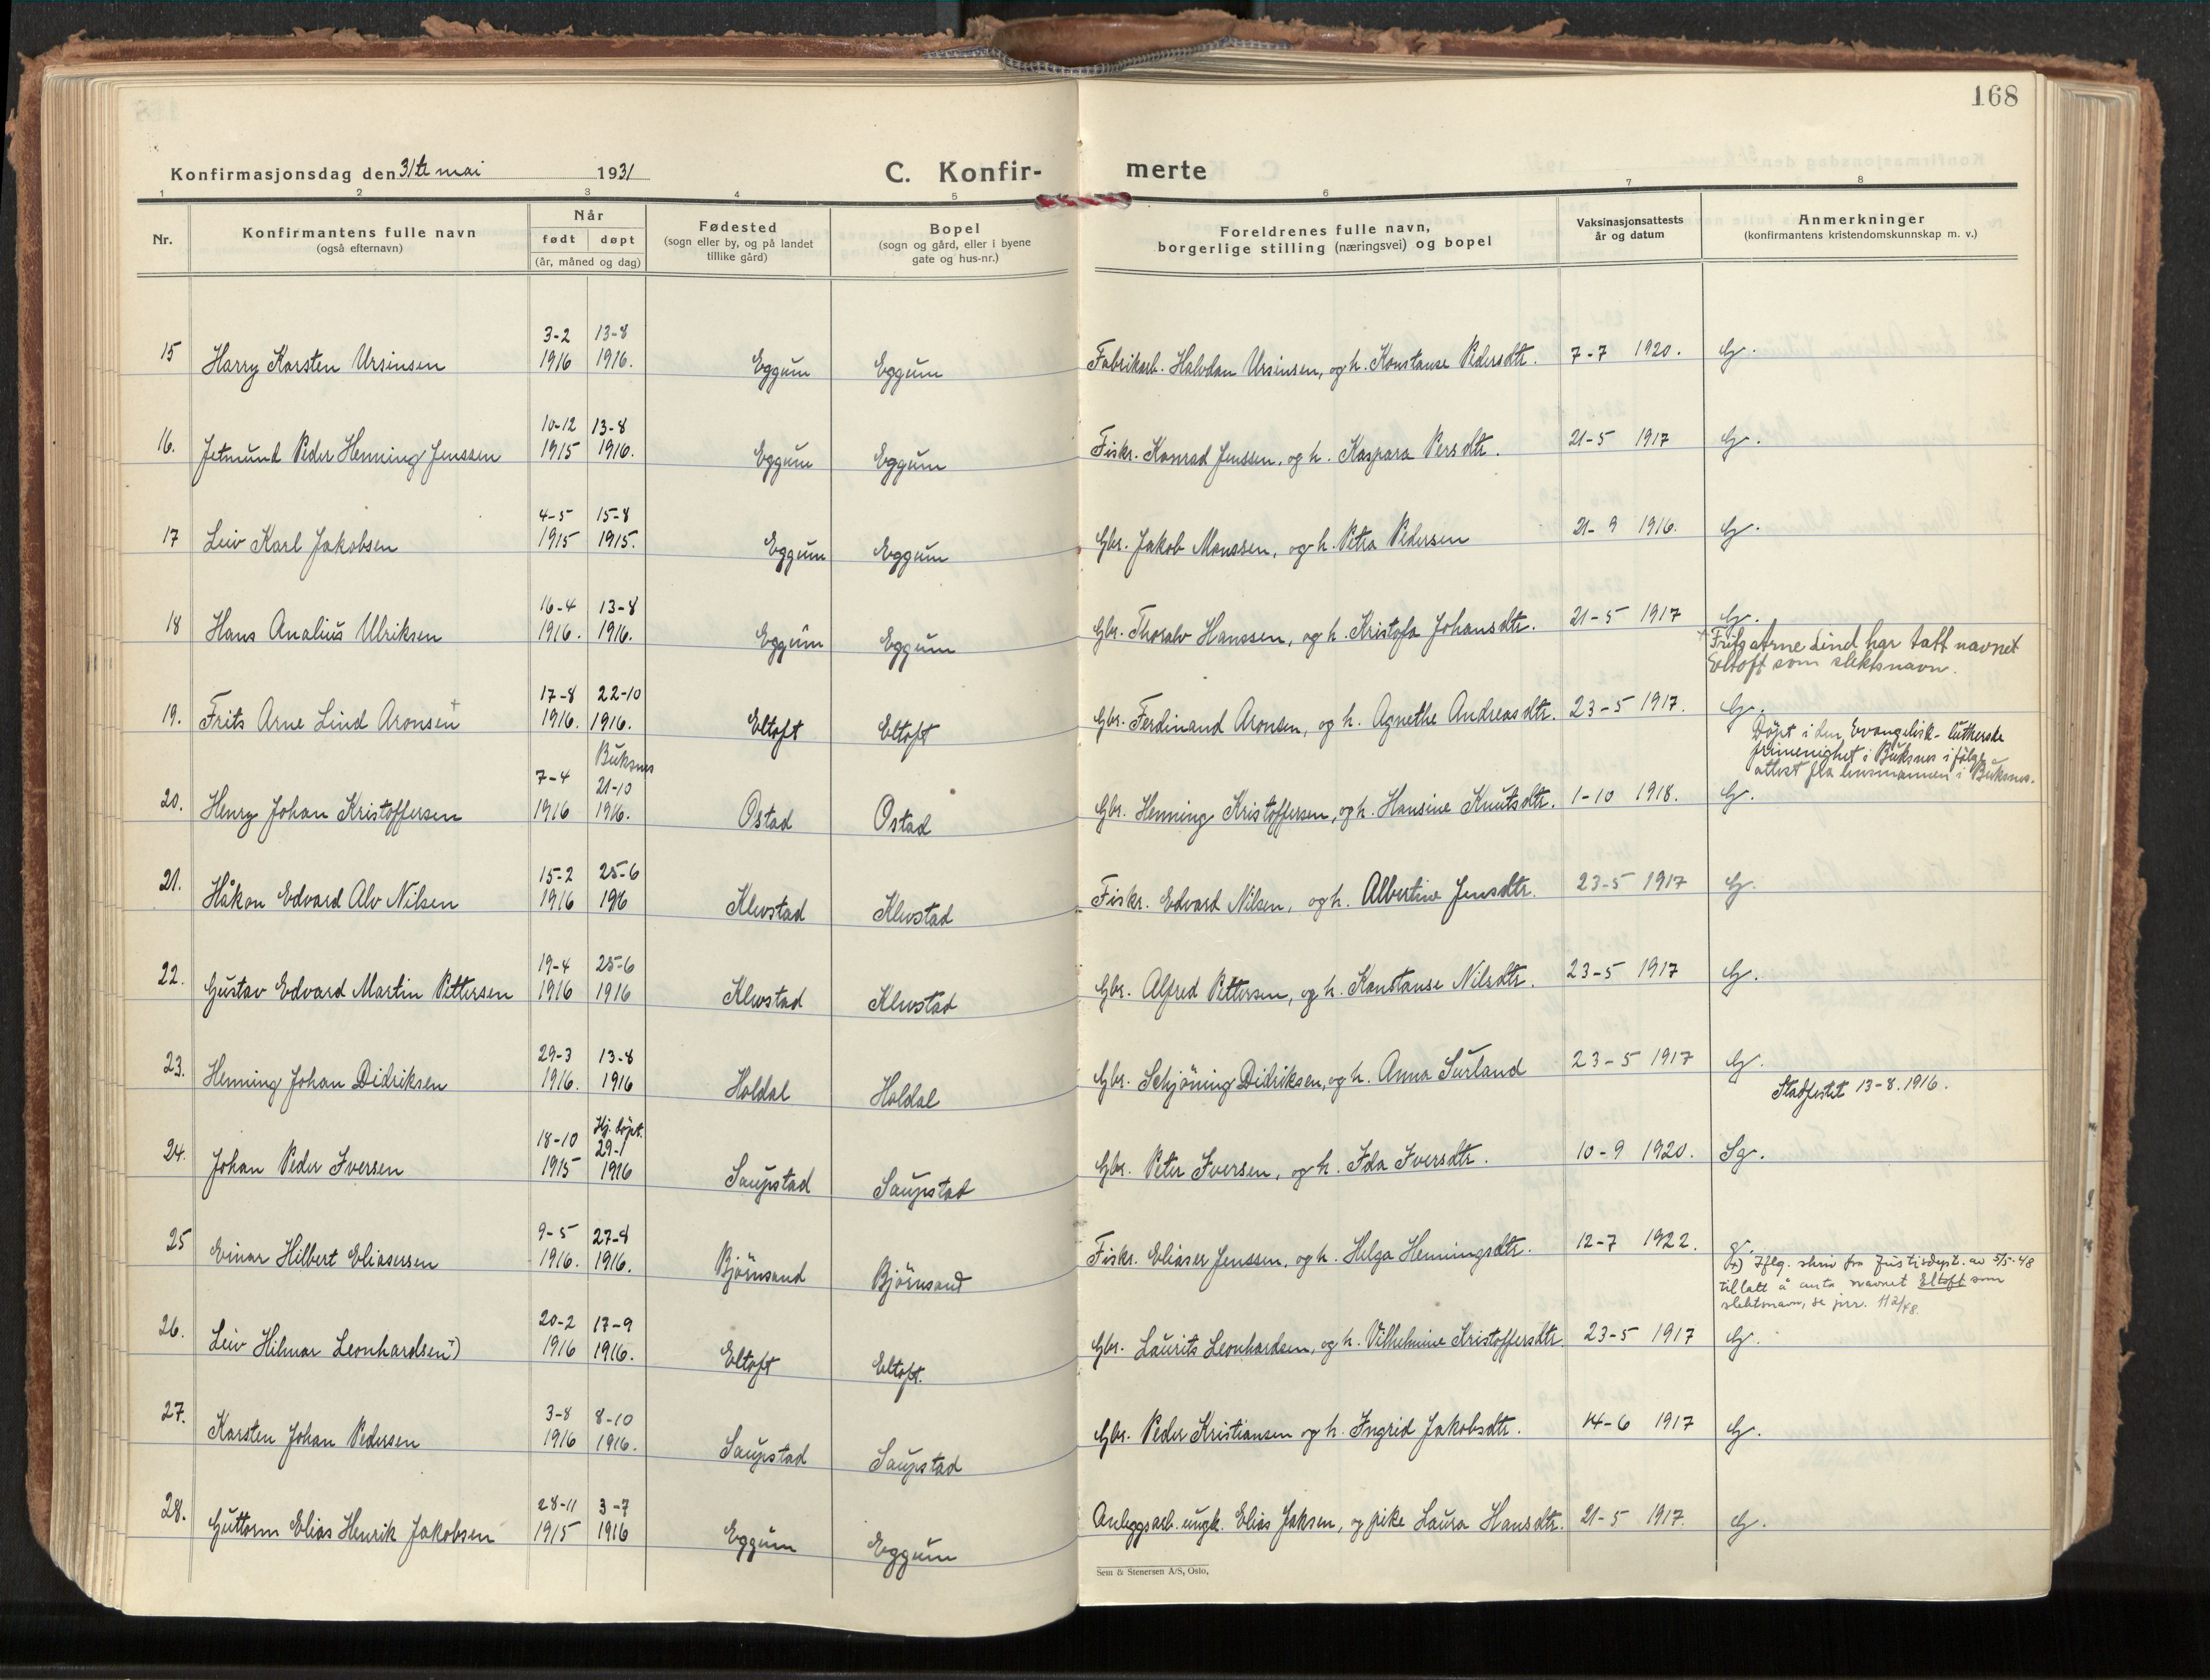 168
Konfirmasjonsdag den 31te mai 1931
C. Konfir- merte
1 2 3 4 5 6 7 8
Nr.
Konfirmantens fulle navn
(også efternavn)
Når
født døpt
(år, måned og dag)
Fødested
(sogn eller by, og på landet
tillike gård)
Bopel
(sogn og gård, eller i byene
gate og hus-nr.)
Foreldrenes fulle navn,
borgerlige stilling (næringsvei) og bopel
Vaksinasjonsattests
år og datum
Anmerkninger
(konfirmantens kristendomskunnskap m. v.)
3-2 13-8
15 Harry Karsten Ursinsen 1916 1916. Eggum Eggum Fabrikarb. Halvdan Ursinsen, og h. Konstanse Pedersdtr. 7-7 1920. G.
10-12 13-8
16. Jetmund Peder Henning Jenssen 1915 1916. Eggum Eggum Fiskr. Konrad Jenssen, og h. Kaspara Persdtr. 21-5 1917 G.
4-5 15-8
17 Leiv Karl Jakobsen 1915 1915. Eggum Eggum Gbr. Jakob Monssen, og h. Petra Pedersen 21-9 1916. G.
16-4 13-8
18 Hans Analius Ulriksen 1916. 1916. Eggum Eggum Gbr. Thoralv Hanssen, og h. Kristofa Johansdtr. 21-5 1917 G.
+ Frits Arne Lind har tatt navnet
Eltoft som slektsnavn.
17-8 22-10
19. Frits Arne Lind Aronsen + 1916. 1916. Eltoft Eltoft Gbr. Ferdinand Aronsen, og h. Agnethe Andreasdtr. 23-5 1917. G.
Døpt i den Evangelisk-lutherske
frimenighet i Buksnes ifølge
attest fra lensmannen i Buksnes.
Buksnes
7-4 21-10
20. Henry Johan Kristoffersen 1916 1916. Ostad Ostad Gbr. Henning Kristoffersen, og h. Hansine Knutsdtr. 1-10 1918. G.
15-2 25-6
21. Håkon Edvard Alv Nilsen 1916 196 Klevstad Klevstad Fiskr. Edvard Nilsen, og h. Albertine Jensdtr. 23-5 1917 G.
19-4 25-6
22. Gustav Edvard Martin Pettersen 1916 1916 Klevstad Klevstad Gbr. Alfred Pettersen, og h. Konstanse Nilsdtr. 23-5 1917 G.
29-3 13-8
23. Henning Johan Didriksen 1916. 1916 Holdal Holdal Gbr. Schjöning Didriksen, og h. Anna Surland 23-5 1917 G.
Stadfestet 13-8.1916.
Hj. døpt.
18-10 29-1
24. Johan Peder Iversen 1915 1916 Saupstad Saupstad Gbr. Peter Iversen, og h. Ida Iversdtr. 10-9 1920. Sg.
9-5 27-8
25 Einar Hilbert Eliasersen 1916. 1916. Björnsand Björnsand Fiskr. Eliaser Jenssen, og h. Helga Henningsdtr. 12-7 1922. g.
Iflg. skriv fra Justisdept. av 5/5-48
tillatt å anta navnet Eltoft som
slektsnavn, se jnr. 112/48.
20-2 17-9
26. Leiv Hilmar Leonhardsen +) 1916 1916. Eltoft Eltoft. Gbr. Laurits Leonhardsen, og h. Vilhelmine Kristoffersdtr. 23-5 1917 G.
3-8 8-10
27. Karsten Johan Pedersen 1916 1916. Saupstad Saupstad Gbr. Peder Kristiansen og h. Ingrid Jakobsdtr. 14-6 1917 G.
28-11 3-7
28. Guttorm Elias Henrik Jakobsen 1915 1916 Eggum Eggum Anleggsarb. ungk. Elias Jaksen, og pike Laura Hansdtr. 21-5 1917. G.
Sem & Stenersen A/S, Oslo.